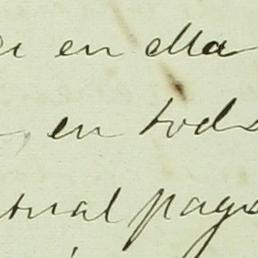 en ella
, en tods
tual pags